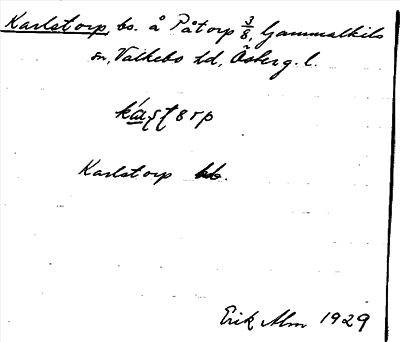 Karlstorp, bs. å Påtorp 3/8, Gammalkils
sn, Valkebo hd, Österg. l.
Karlstorp
Erik Alm 1929